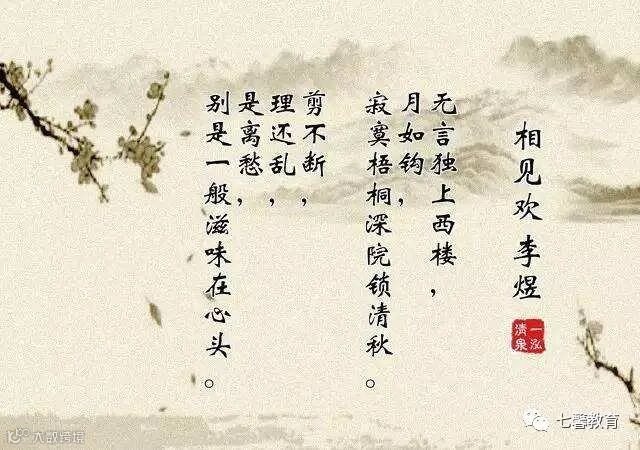 相见欢 李煜
无言独上西楼，
月如钩，
寂寞梧桐深院锁清秋。
剪不断，
理还乱，
是离愁，
别是一般滋味在心头。
一泓
清泉
七馨教育
大数跨境